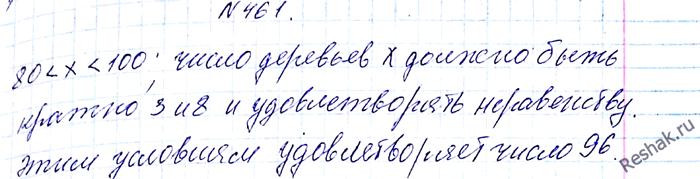 №461.
80 < x < 100; число деревьев x должно быть
кратно 3 и 8 и удовлетворять неравенству.
Этим условиям удовлетворяет число 96.
Reshak.ru